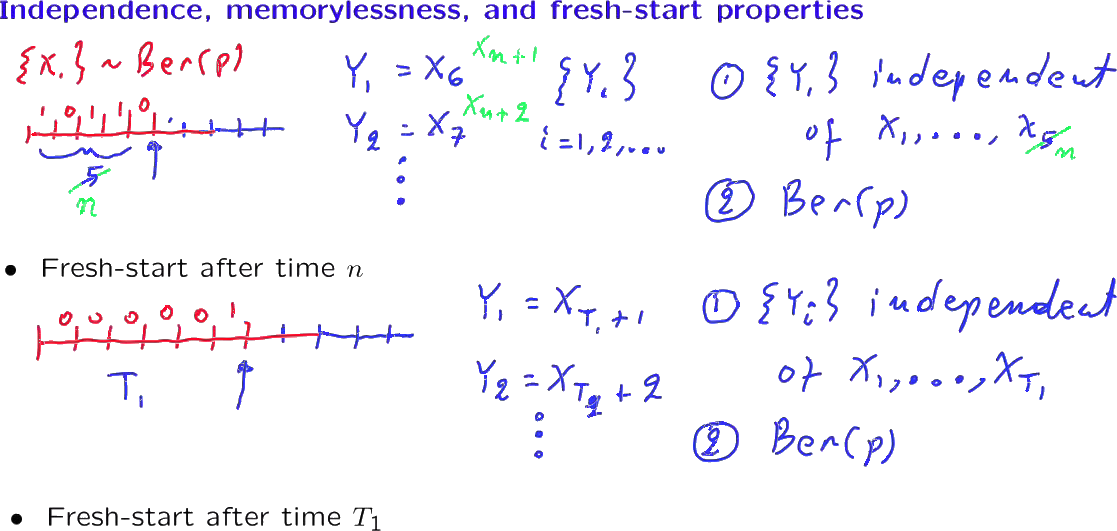 Independence, memorylessness, and fresh-start properties
{X.} ~ Ber(p)
1 0 1 1 0
5
n
Y₁ = X₆ Xₙ₊₁
Y₂ = X₇ Xₙ₊₂
⋮
{Yᵢ}
i = 1, 2, ...
① {Yᵢ} independent
of X₁, ..., X₅ n
② Ber(p)
• Fresh-start after time n
0 0 0 0 0 1
T₁
Y₁ = X_{T₁+1}
Y₂ = X_{T₂+2}
⋮
① {Yᵢ} independent
of X₁, ..., X_{T₁}
② Ber(p)
• Fresh-start after time T₁